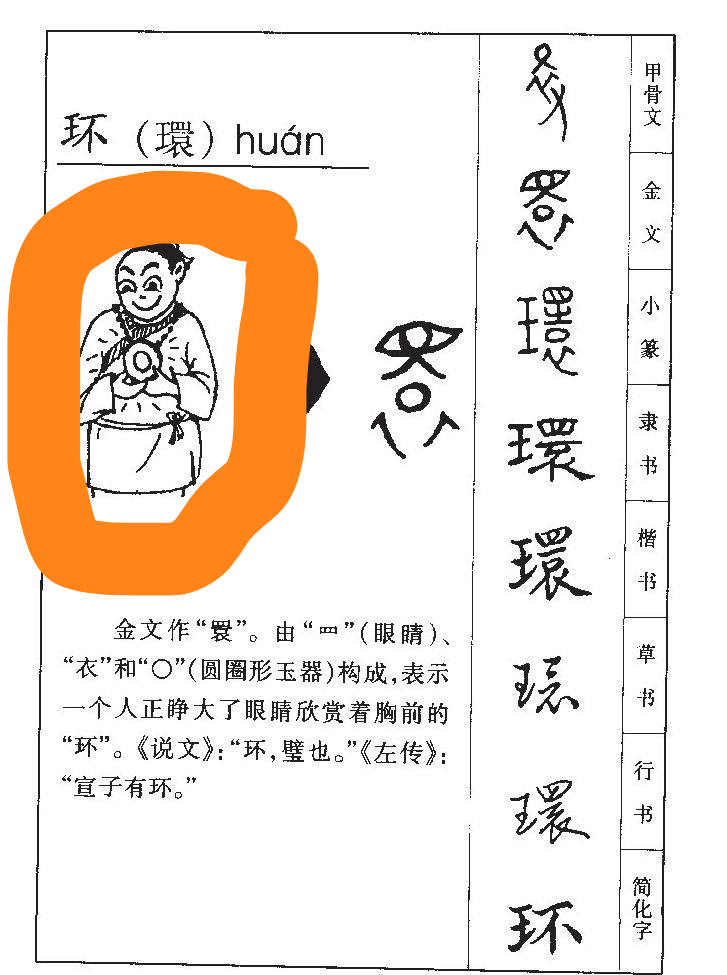 环（環）huán
金文作“睘”。由“罒”（眼睛）、
“衣”和“〇”（圆圈形玉器）构成，表示
一个人正睁大了眼睛欣赏着胸前的
“环”。《说文》：“环，璧也。”《左传》：
“宣子有环。”
甲骨文
金文
小篆
環
隶书
環
楷书
環
草书
环
行书
環
简化字
环